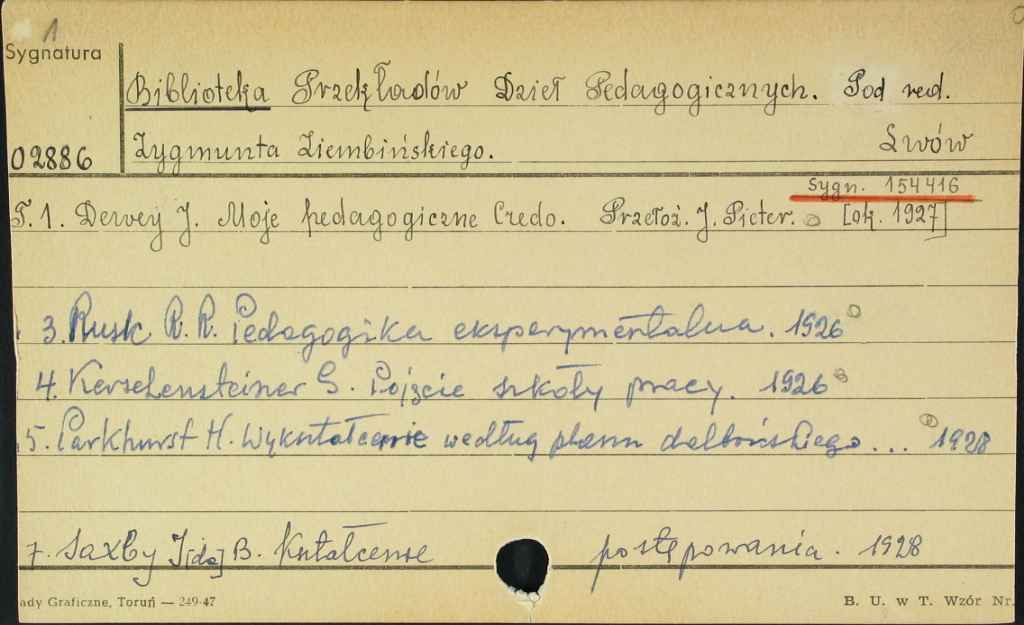 1
Sygnatura
Biblioteka Przekładów Dzieł Pedagogicznych. Pod red.
02886 Zygmunta Ziembińskiego. Lwów
Sygn. 154416
T. 1. Dewey J. Moje pedagogiczne Credo. Przełoż. J. Pieter. [ok. 1927]
3. Rusk R. R. Pedagogika eksperymentalna. 1926
4. Kerschensteiner G. Pojęcie szkoły pracy. 1926
5. Parkhurst H. Wykształcenie według planu daltońskiego... 1928
7. Saxby J[da] B. Kształcenie postępowania. 1928
ady Graficzne, Toruń — 249-47
B. U. w T. Wzór Nr.